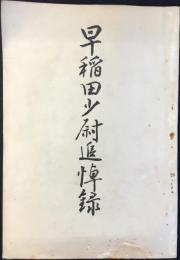 早稲田少尉追悼録